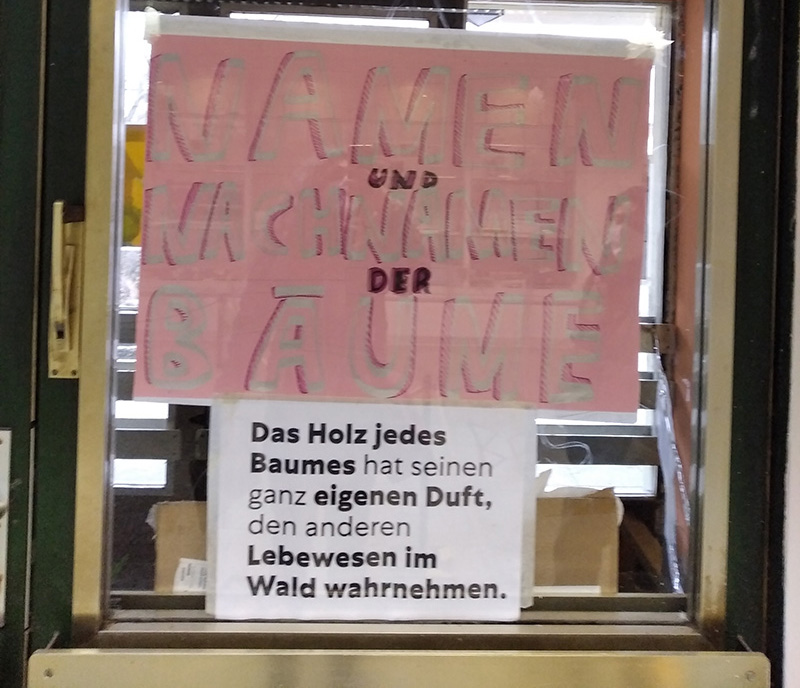 NAMEN
UND
NACHNAMEN
DER
BĀUME
Das Holz jedes
Baumes hat seinen
ganz eigenen Duft,
den anderen
Lebewesen im
Wald wahrnehmen.